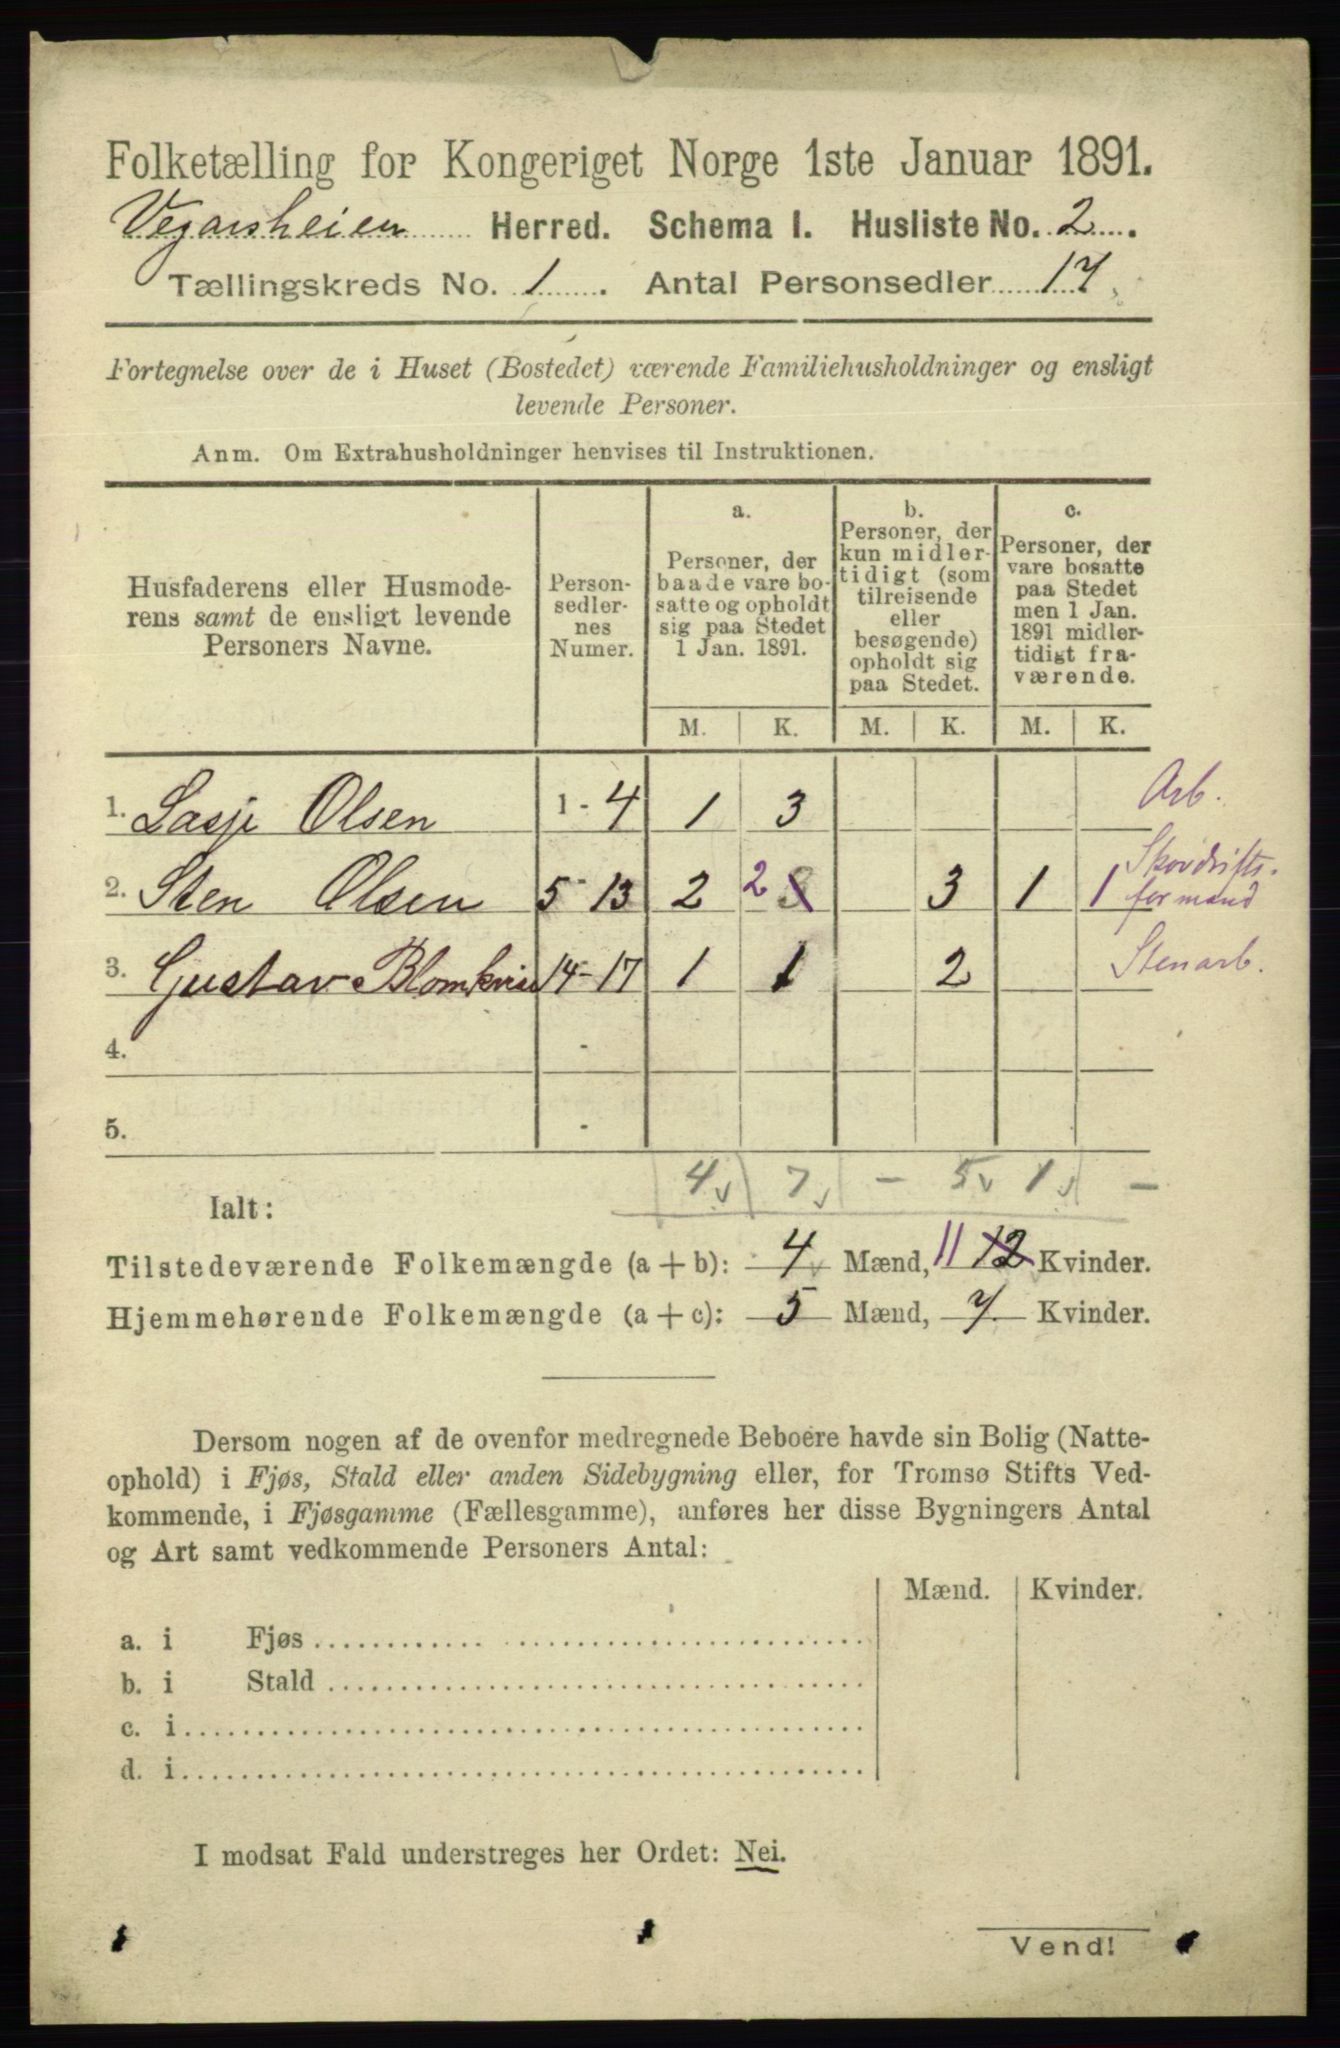 Folketælling for Kongeriget Norge 1ste Januar 1891.
Vegarsheien Herred. Schema I. Husliste No. 2.
Tællingskreds No. 1. Antal Personsedler 17.
Fortegnelse over de i Huset (Bostedet) værende Familiehusholdninger og ensligt
levende Personer.
Anm. Om Extrahusholdninger henvises til Instruktionen.
Husfaderens eller Husmode-
rens samt de ensligt levende
Personers Navne.
Person-
sedler-
nes
Numer.
a.
Personer, der
baade vare bo-
satte og opholdt
sig paa Stedet
1 Jan. 1891.
b.
Personer, der
kun midler-
tidigt (som
tilreisende
eller
besøgende)
opholdt sig
paa Stedet.
c.
Personer, der
vare bosatte
paa Stedet
men 1 Jan.
1891 midler-
tidigt fra-
værende.
M. K. M. K. M. K.
1. Olsen 1 - 4 1 3 Arb.
2. Sten Olsen 5 - 13 2 2 3 3 1 1 Skovdrifts-
formand
3. Gustav Blomkvist 14 - 17 1 1 2 Stenarb.
4. -
5. -
4 7 - 5 1 -
Ialt:
Tilstedeværende Folkemængde (a + b): 4 Mænd, 11 12 Kvinder.
Hjemmehørende Folkemængde (a + c): 5 Mænd, 7 Kvinder.
Dersom nogen af de ovenfor medregnede Beboere havde sin Bolig (Natte-
ophold) i Fjøs, Stald eller anden Sidebygning eller, for Tromsø Stifts Ved-
kommende, i Fjøsgamme (Fællesgamme), anføres her disse Bygningers Antal
og Art samt vedkommende Personers Antal:
Mænd. Kvinder.
a. i Fjøs
b. i Stald
c. i
d. i
I modsat Fald understreges her Ordet: Nei.
Vend!